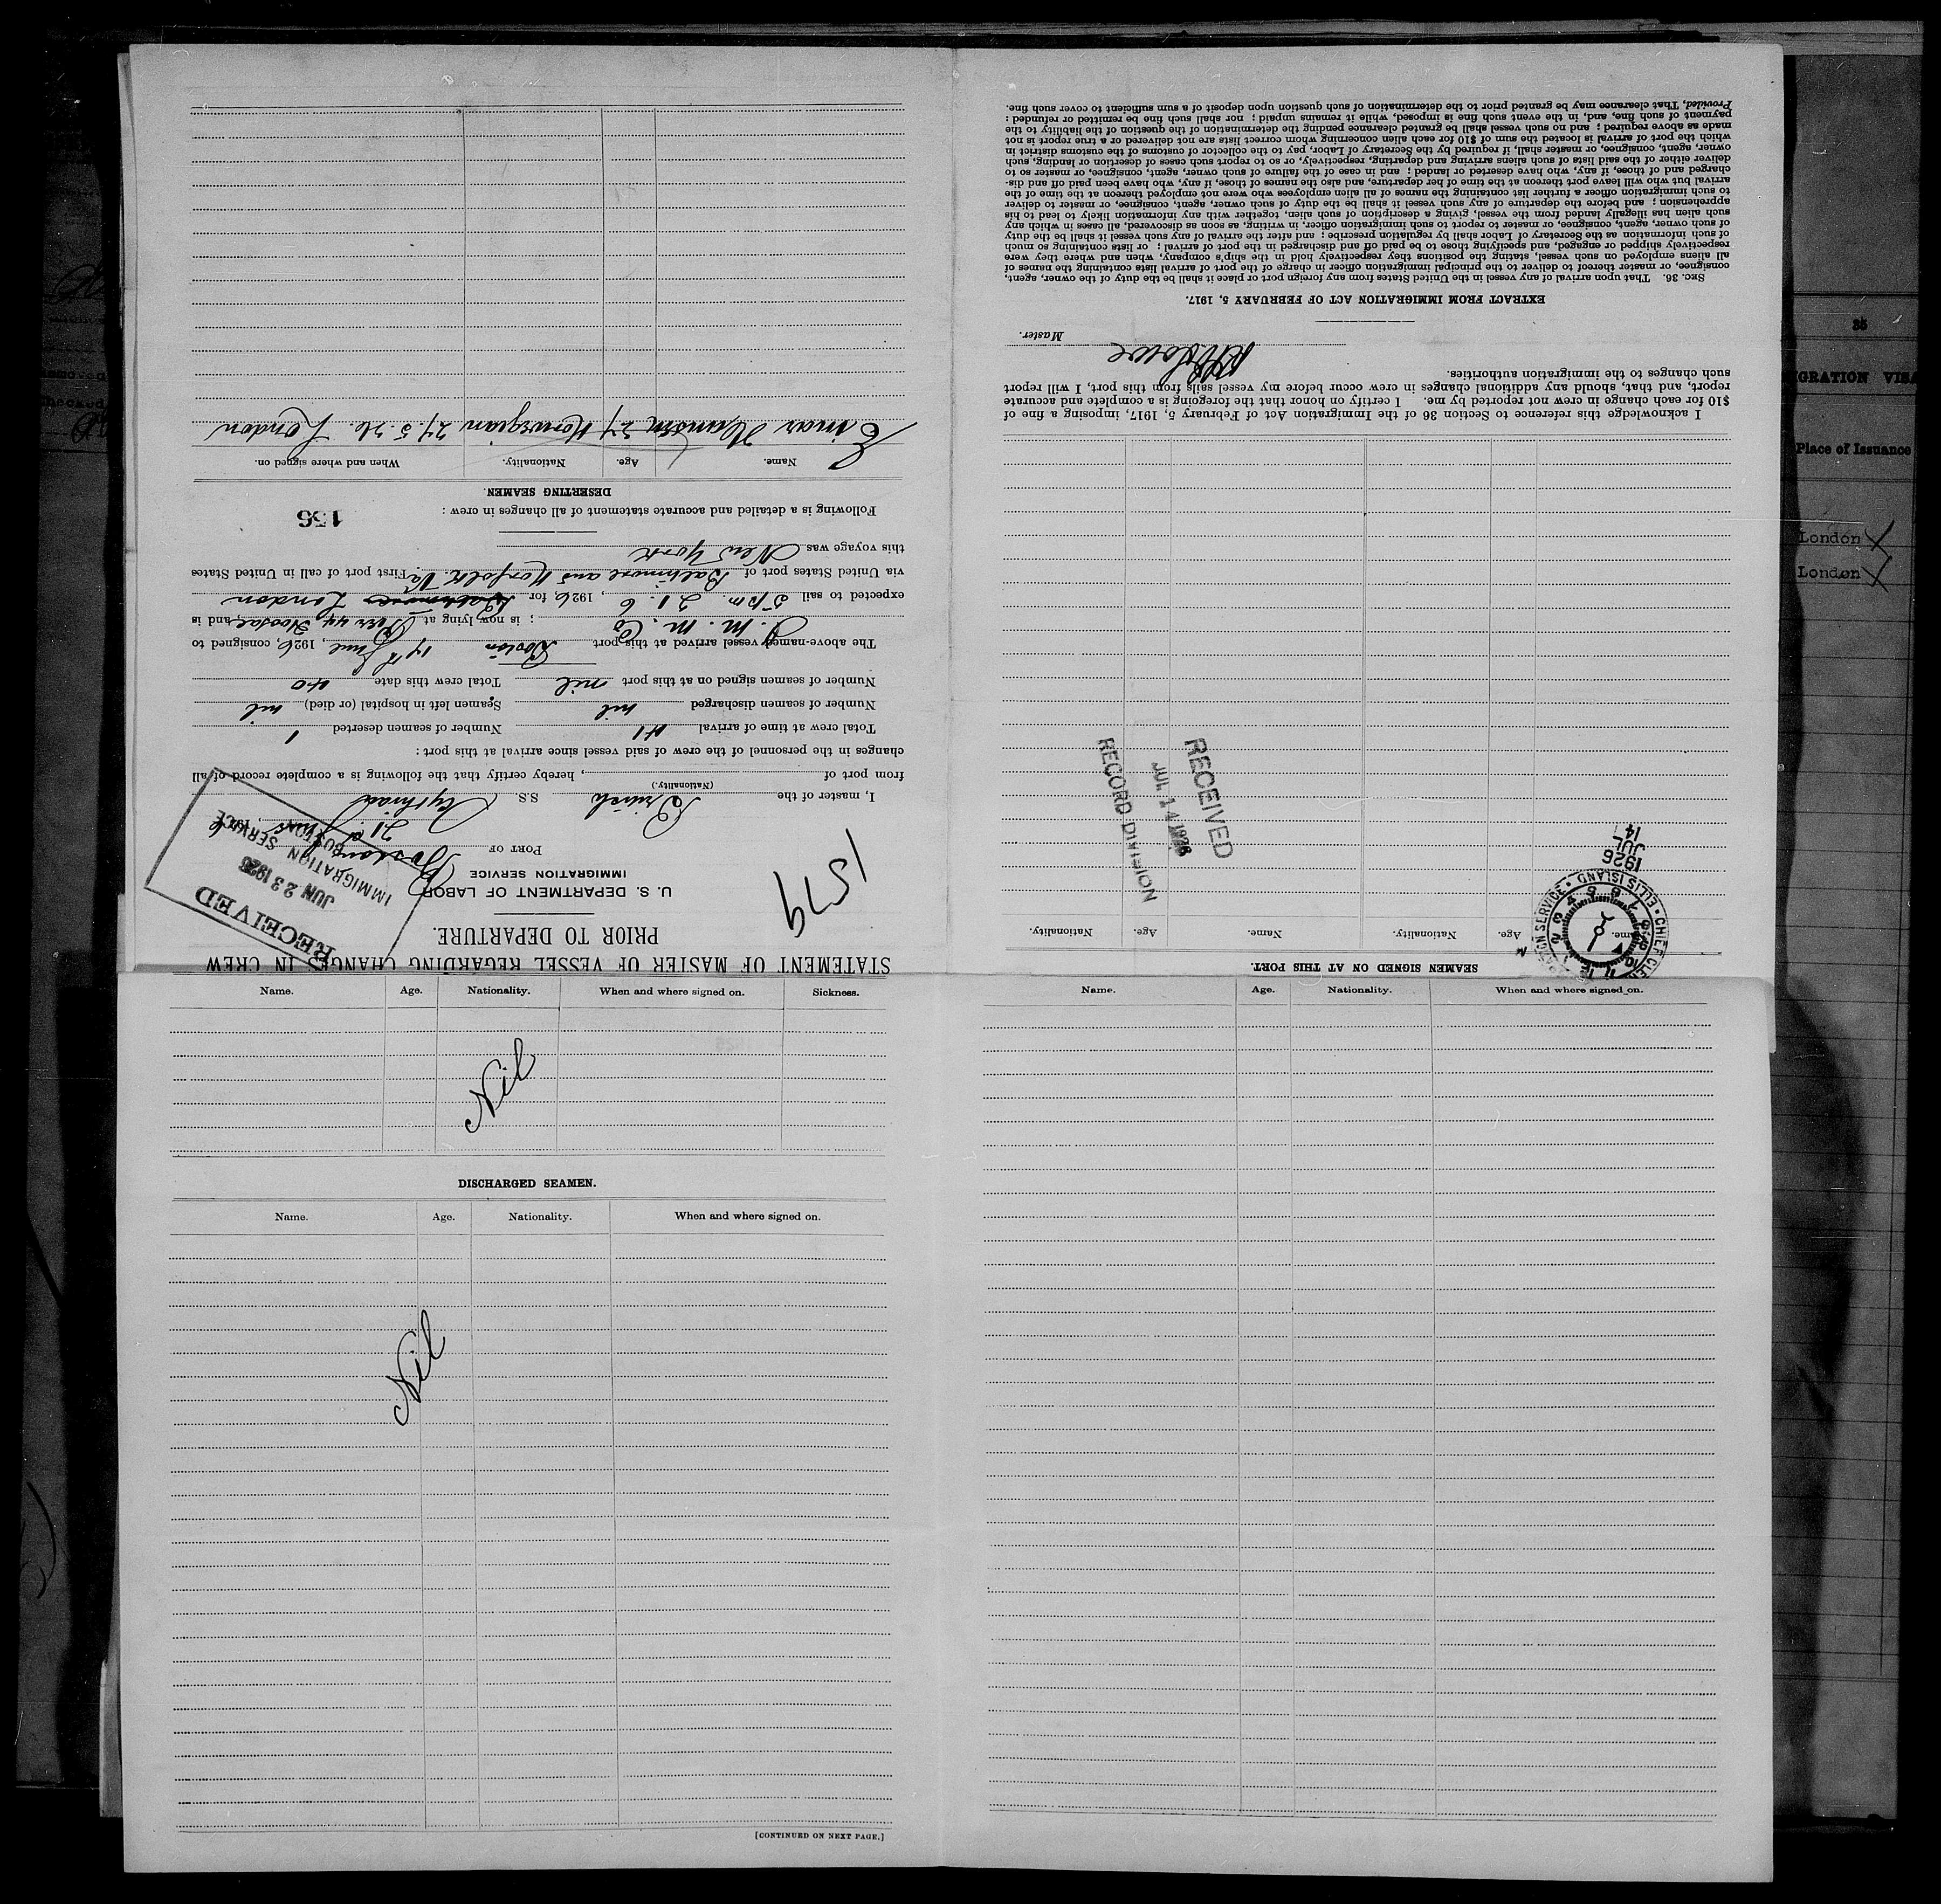 STATEMENT OF MASTER OF VESSEL REGARDING CHANGES IN CREW
PRIOR TO DEPARTURE.
U. S. DEPARTMENT OF LABOR
IMMIGRATION SERVICE
1579
RECEIVED
JUN 23 1926
IMMIGRATION SERVICE
BOSTON
PORT OF Boston
21st June, 1926
I, master of the British S.S. Scythian
(Nationality.)
from port of , hereby certify that the following is a complete record of all
changes in the personnel of the crew of said vessel since arrival at this port :
Total crew at time of arrival 41 Number of seamen deserted 1
Number of seamen discharged nil Seamen left in hospital (or died) nil
Number of seamen signed on at this port nil Total crew this date 40
The above-named vessel arrived at this port Boston 17th June, 1926, consigned to
I. M. M. Co ; is now lying at Pier 44 Hoosac, and is
expected to sail 5 pm. 21. 6, 1926, for London
via United States port of Baltimore and Norfolk. Va. First port of call in United States
this voyage was New York
Following is a detailed and accurate statement of all changes in crew :
136
DESERTING SEAMEN.
Name. Age. Nationality. When and where signed on.
Einar Hansen 27 Norwegian 27 5 26 London
SEAMEN SIGNED ON AT THIS PORT.
Name. Age. Nationality. Name. Age. Nationality.
ELLIS ISLAND • CHIEF CLERK
1926
JUL
14
RECEIVED
JUL 14 1926
RECORD DIVISION
I acknowledge this reference to Section 36 of the Immigration Act of February 5, 1917, imposing a fine of
$10 for each change in crew not reported by me. I certify on honor that the foregoing is a complete and accurate
report, and that, should any additional changes in crew occur before my vessel sails from this port, I will report
such changes to the immigration authorities.
Master.
EXTRACT FROM IMMIGRATION ACT OF FEBRUARY 5, 1917.
SEC. 36. That upon arrival of any vessel in the United States from any foreign port or place it shall be the duty of the owner, agent,
consignee, or master thereof to deliver to the principal immigration officer in charge of the port of arrival lists containing the names of
all aliens employed on such vessel, stating the positions they respectively hold in the ship's company, when and where they were
respectively shipped or engaged, and specifying those to be paid off and discharged in the port of arrival ; or lists containing so much
of such information as the Secretary of Labor shall by regulation prescribe ; and after the arrival of any such vessel it shall be the duty
of such owner, agent, consignee, or master to report to such immigration officer, in writing, as soon as discovered, all cases in which any
such alien has illegally landed from the vessel, giving a description of such alien, together with any information likely to lead to his
apprehension ; and before the departure of any such vessel it shall be the duty of such owner, agent, consignee, or master to deliver
to such immigration officer a further list containing the names of all alien employees who were not employed thereon at the time of the
arrival but who will leave port thereon at the time of her departure, and also the names of those, if any, who have been paid off and dis-
charged and of those, if any, who have deserted or landed ; and in case of the failure of such owner, agent, consignee, or master so to
deliver either of the said lists of such aliens arriving and departing, respectively, or so to report such cases of desertion or landing, such
owner, agent, consignee, or master shall, if required by the Secretary of Labor, pay to the collector of customs of the customs district in
which the port of arrival is located the sum of $10 for each alien concerning whom correct lists are not delivered or a true report is not
made as above required ; and no such vessel shall be granted clearance pending the determination of the question of the liability to the
payment of such fine, and, in the event such fine is imposed, while it remains unpaid ; nor shall such fine be remitted or refunded :
Provided, That clearance may be granted prior to the determination of such question upon deposit of a sum sufficient to cover such fine.
Name. Age. Nationality. When and where signed on. Sickness.
Nil
DISCHARGED SEAMEN.
Name. Age. Nationality. When and where signed on.
Nil
[CONTINUED ON NEXT PAGE.]
Name. Age. Nationality. When and where signed on.
35
IGRATION VISA
Place of Issuance
London X
London X